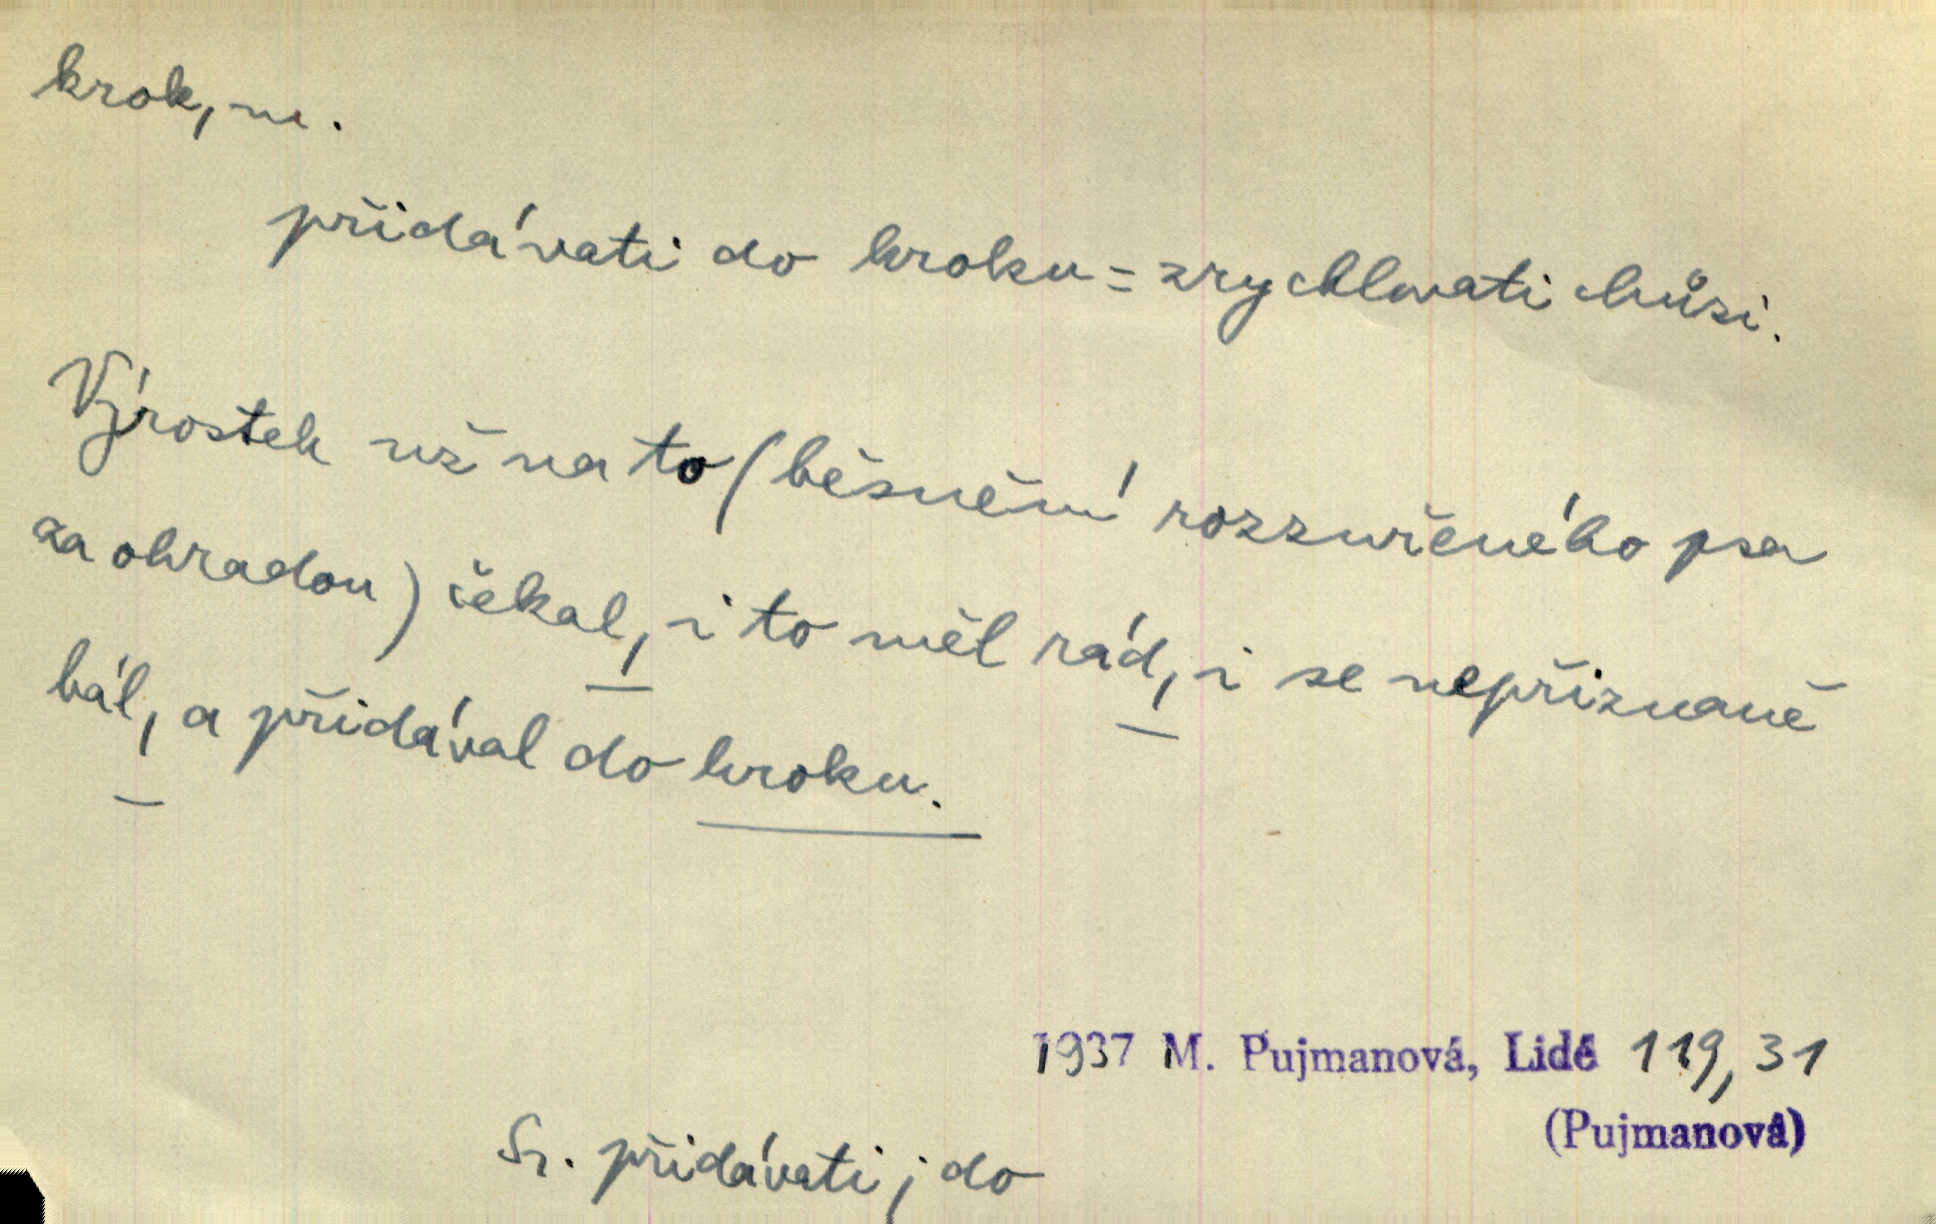 krok, m.
přidávati do kroku = zrychlovati chůzi.
Výrostek už na to (běsnění rozzuřeného psa
za ohradou) čekal, i to měl rád, i se nepřiznaně
bál, a přidával do kroku.
1937 M. Pujmanová, Lidé 119, 31
(Pujmanová)
Sr. přidávati; do